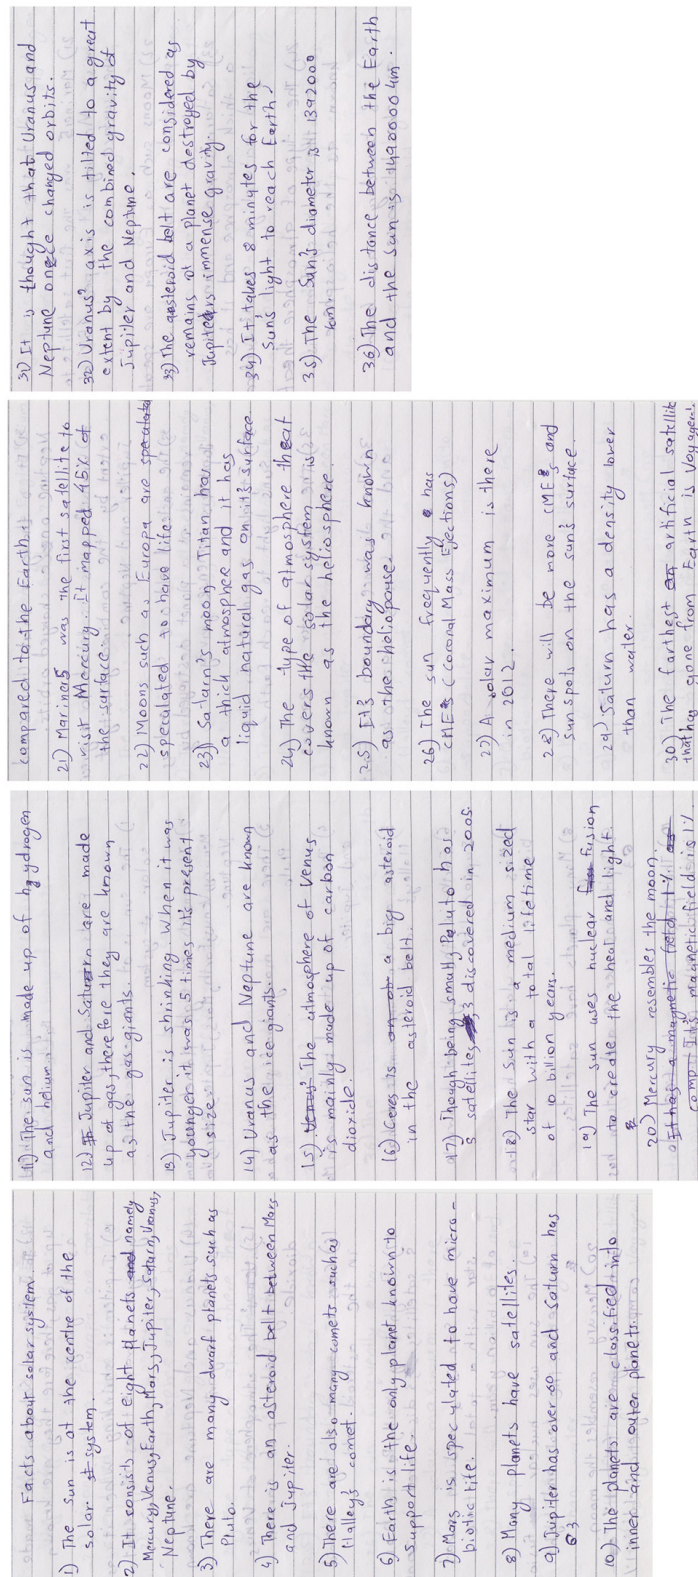 Facts about solar system.
1) The sun is at the centre of the
solar system.
2) It consists of eight planets namely
Mercury, Venus, Earth, Mars, Jupiter, Saturn, Uranus,
Neptune.
3) There are many dwarf planets such as
Pluto.
4) There is an asteroid belt between Mars
and Jupiter.
5) There are also many comets such as
Halley's comet.
6) Earth is the only planet known to
support life.
7) Mars is speculated to have micro-
biotic life.
8) Many planets have satellites.
9) Jupiter has over 60 and Saturn has
63
10) The planets are classified into
inner and outer planets.
11) The sun is made up of hydrogen
and helium.
12) Jupiter and Saturn are made
up of gas, therefore they are known
as the gas giants.
13) Jupiter is shrinking. When it was
younger it was 5 times it's present
size.
14) Uranus and Neptune are known
as the ice giants.
15) The atmosphere of Venus
is mainly made up of carbon
dioxide.
16) Ceres is a big asteroid
in the asteroid belt.
17) Though being small, Pluto has
5 satellites, 3 discovered in 2005.
18) The sun is a medium sized
star with a total lifetime
of 10 billion years.
19) The sun uses nuclear fusion
to create the heat and light.
20) Mercury resembles the moon.
It has a magnetic field 1% as
comp It's magnetic field is 1%
compared to the Earth.
21) Mariner 5 was the first satellite to
visit Mercury. It mapped 45% of
the surface.
22) Moons such as Europa are speculated
speculated to have life.
23) Saturn's moon Titan has
a thick atmosphere and it has
liquid natural gas on it's surface.
24) The type of atmosphere that
covers the solar system is
known as the heliosphere.
25) It's boundary was known
as the heliopause.
26) The sun frequently has
CME's (Coronal Mass Ejections)
27) A solar maximum is there
in 2012.
28) There will be more CME's and
sunspots on the sun's surface.
29) Saturn has a density lower
than water.
30) The farthest artificial satellite
that has gone from Earth is Voyager 1.
31) It is thought that Uranus and
Neptune once changed orbits.
32) Uranus' axis is tilted to a great
extent by the combined gravity of
Jupiter and Neptune.
33) The asteroid belt are considered as
remains of a planet destroyed by
Jupiter's immense gravity.
34) It takes 8 minutes for the
sun's light to reach Earth.
35) The Sun's diameter is 1392000
km
36) The distance between the Earth
and the sun is 149000000 km.